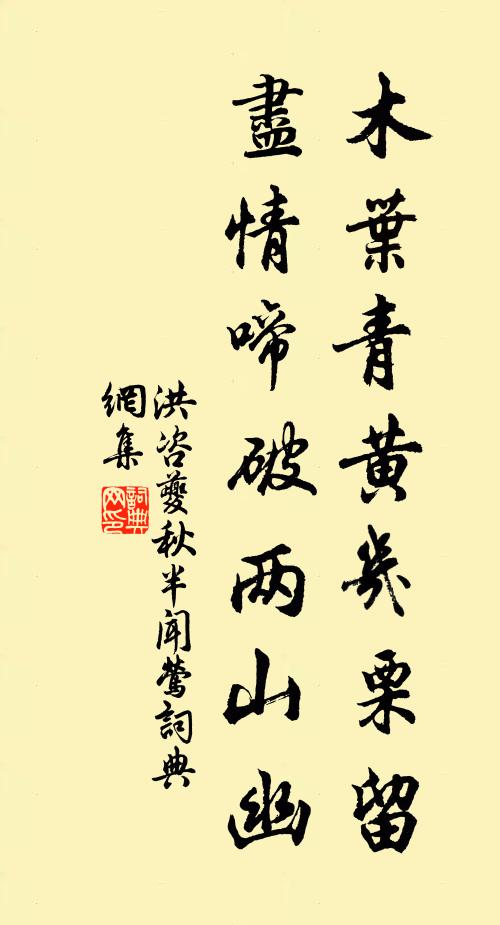 木葉青黃幾栗留
盡情啼破两山幽
洪咨夔秋半聞鶯詞典
網集
詞典
网印